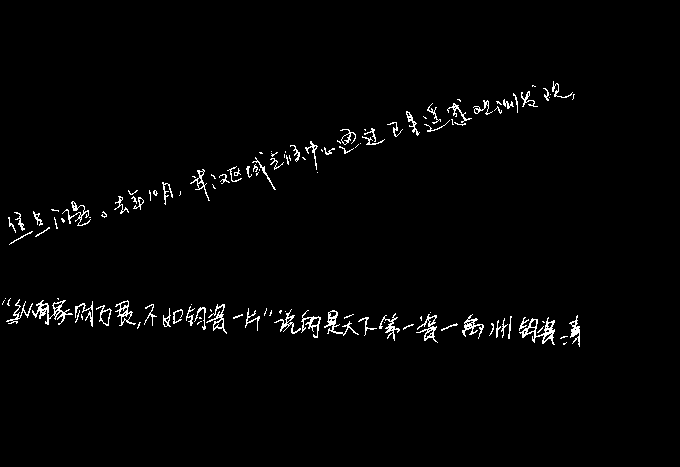 焦点问题。去年10月,武汉区域气候中心通过卫星遥感观测发现,
“纵有家财万贯,不如钧瓷一片”说的是天下第一瓷一禹州钧瓷。